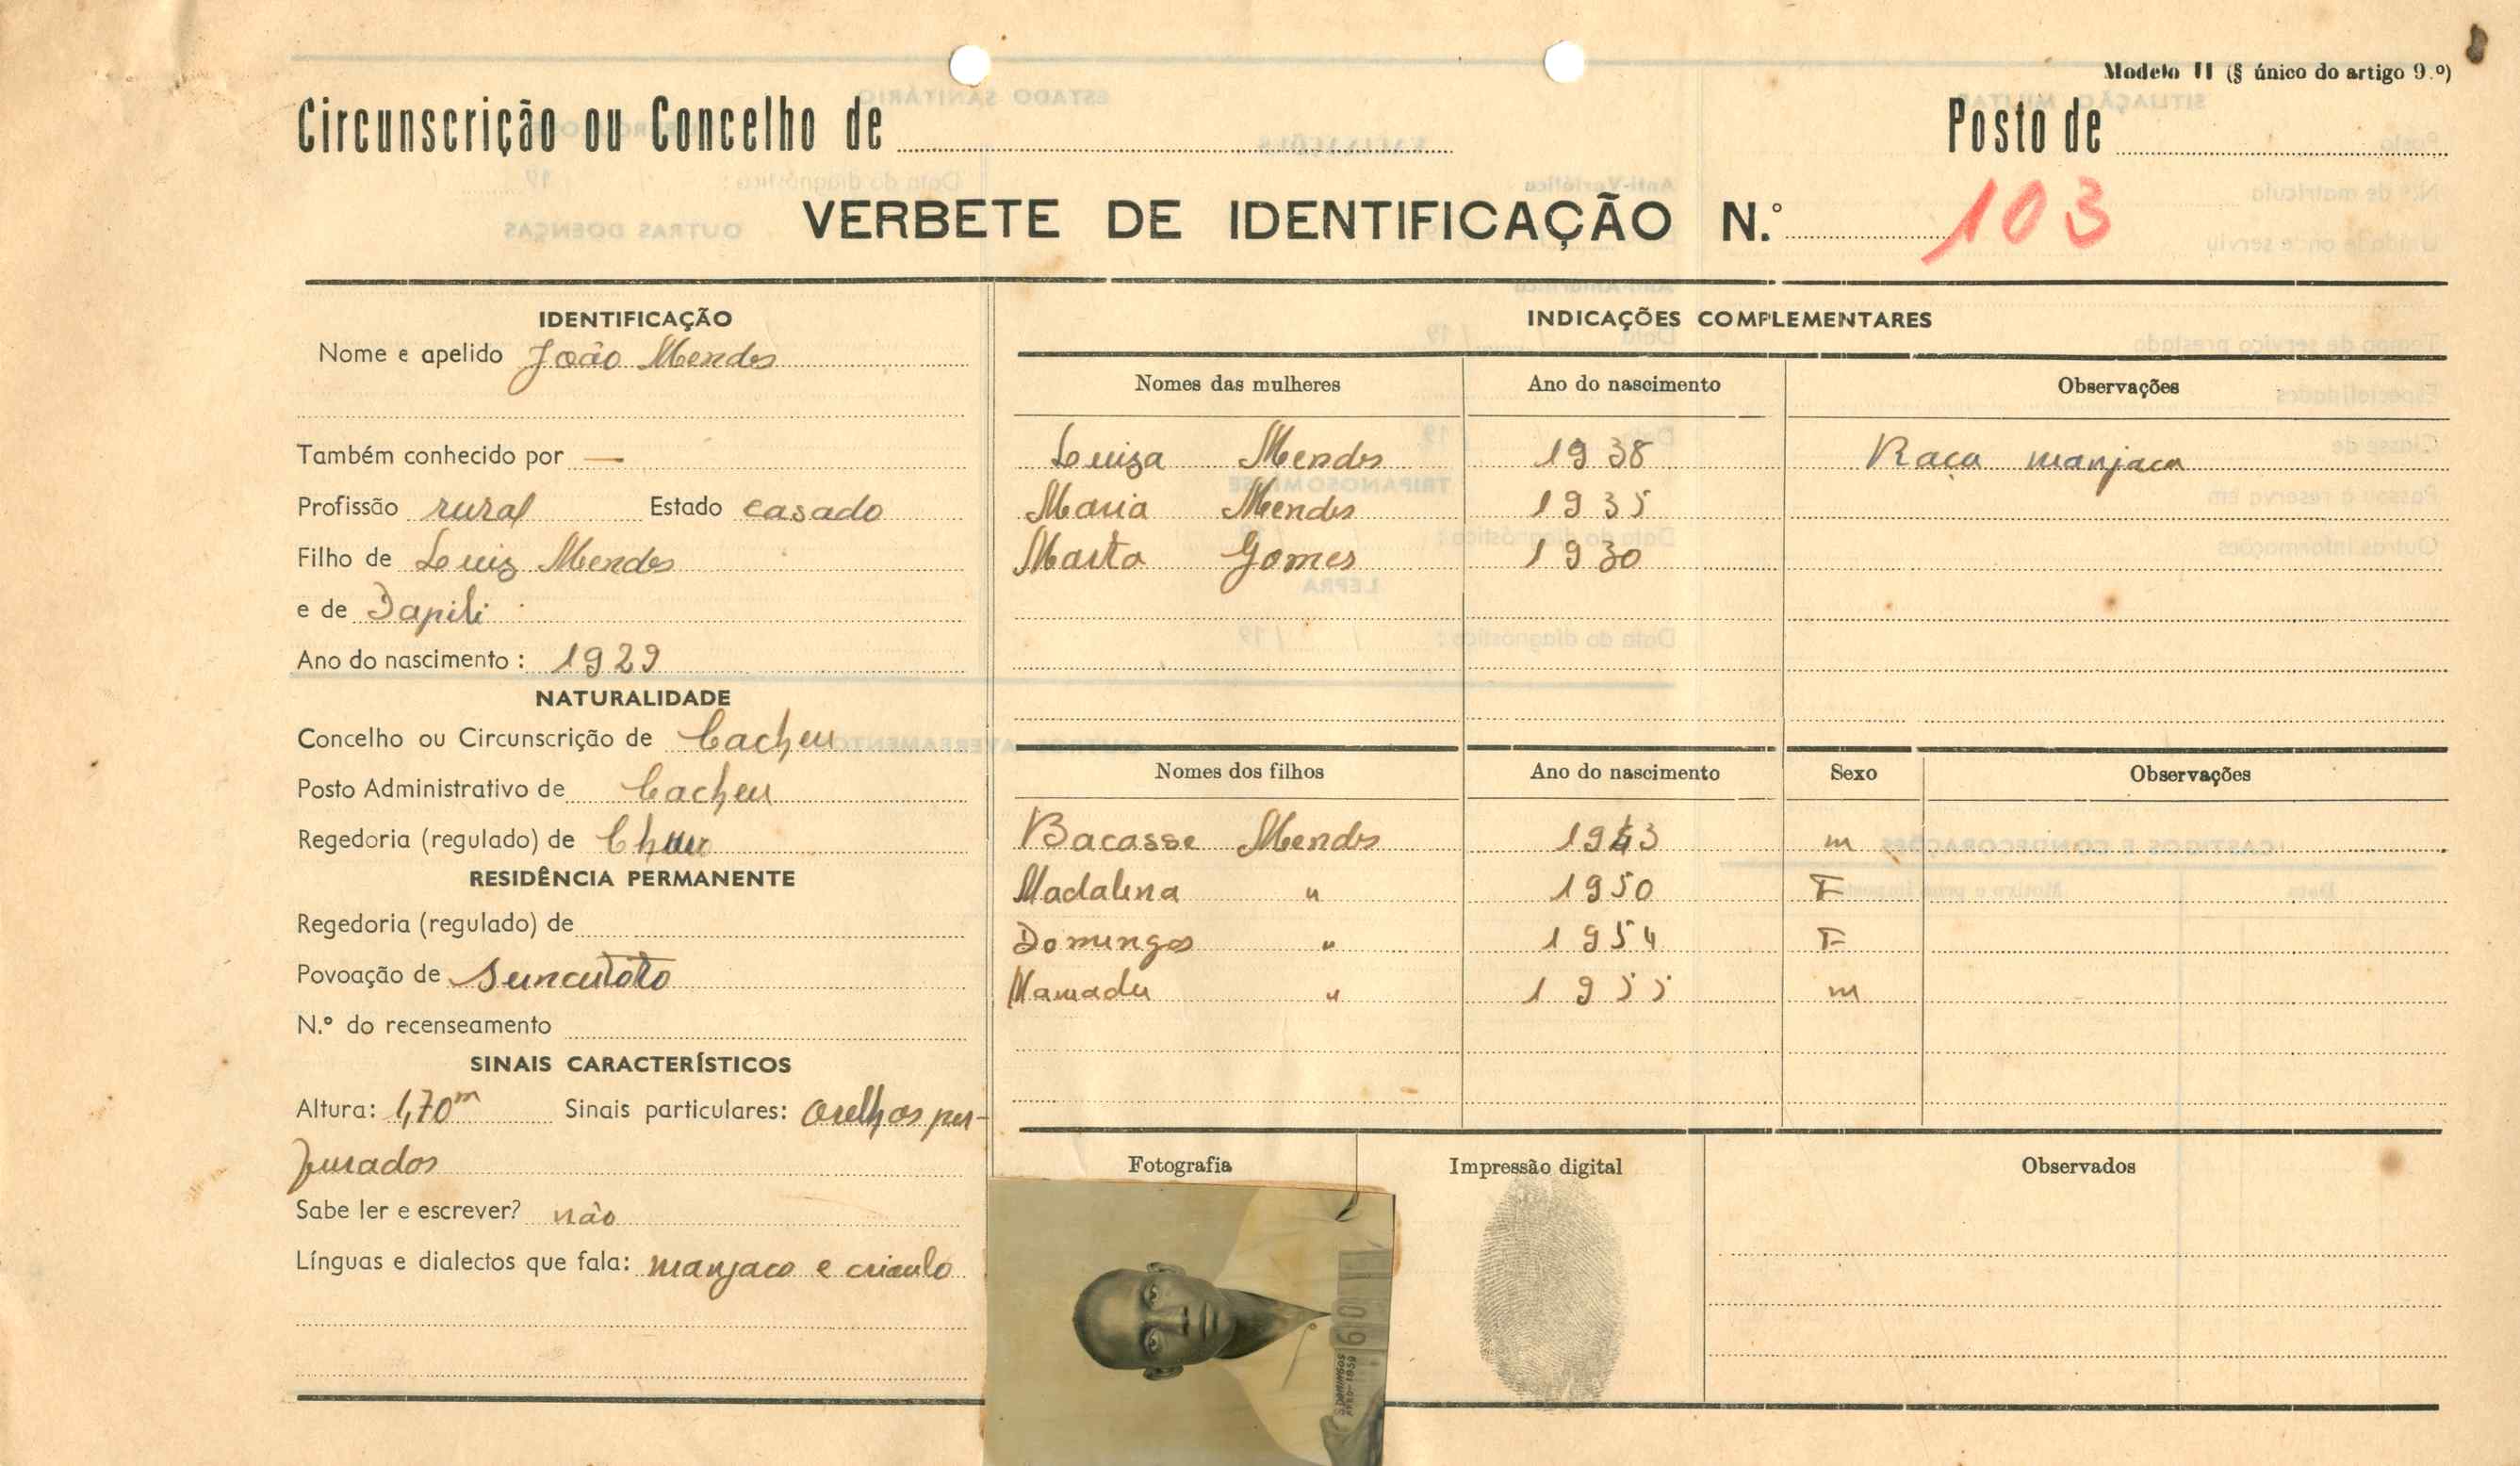 Modelo II (§ único do artigo 9.º)
Circunscrição ou Concelho de
Posto de
VERBETE DE IDENTIFICAÇÃO N.º 103
IDENTIFICAÇÃO
Nome e apelido João Mendes
Também conhecido por —
Profissão rural Estado casado
Filho de Luiz Mendes
e de Dapili
Ano do nascimento: 1929
NATURALIDADE
Concelho ou Circunscrição de Cacheu
Posto Administrativo de Cacheu
Regedoria (regulado) de
RESIDÊNCIA PERMANENTE
Regedoria (regulado) de
Povoação de Suncutoto
N.º do recenseamento
SINAIS CARACTERÍSTICOS
Altura: 1,70m Sinais particulares: orelhas per-
furados
Sabe ler e escrever? não
Línguas e dialectos que fala: manjaco e crioulo
INDICAÇÕES COMPLEMENTARES
Nomes das mulheres Ano do nascimento Observações
Luiza Mendes 1938 Raça manjaca
Maria Mendes 1935
Marta Gomes 1930
Nomes dos filhos Ano do nascimento Sexo Observações
Bacasse Mendes 1943 m
Madalena " 1950 F
Domingas " 1954 F
Mamadu " 1955 m
Fotografia Impressão digital Observados